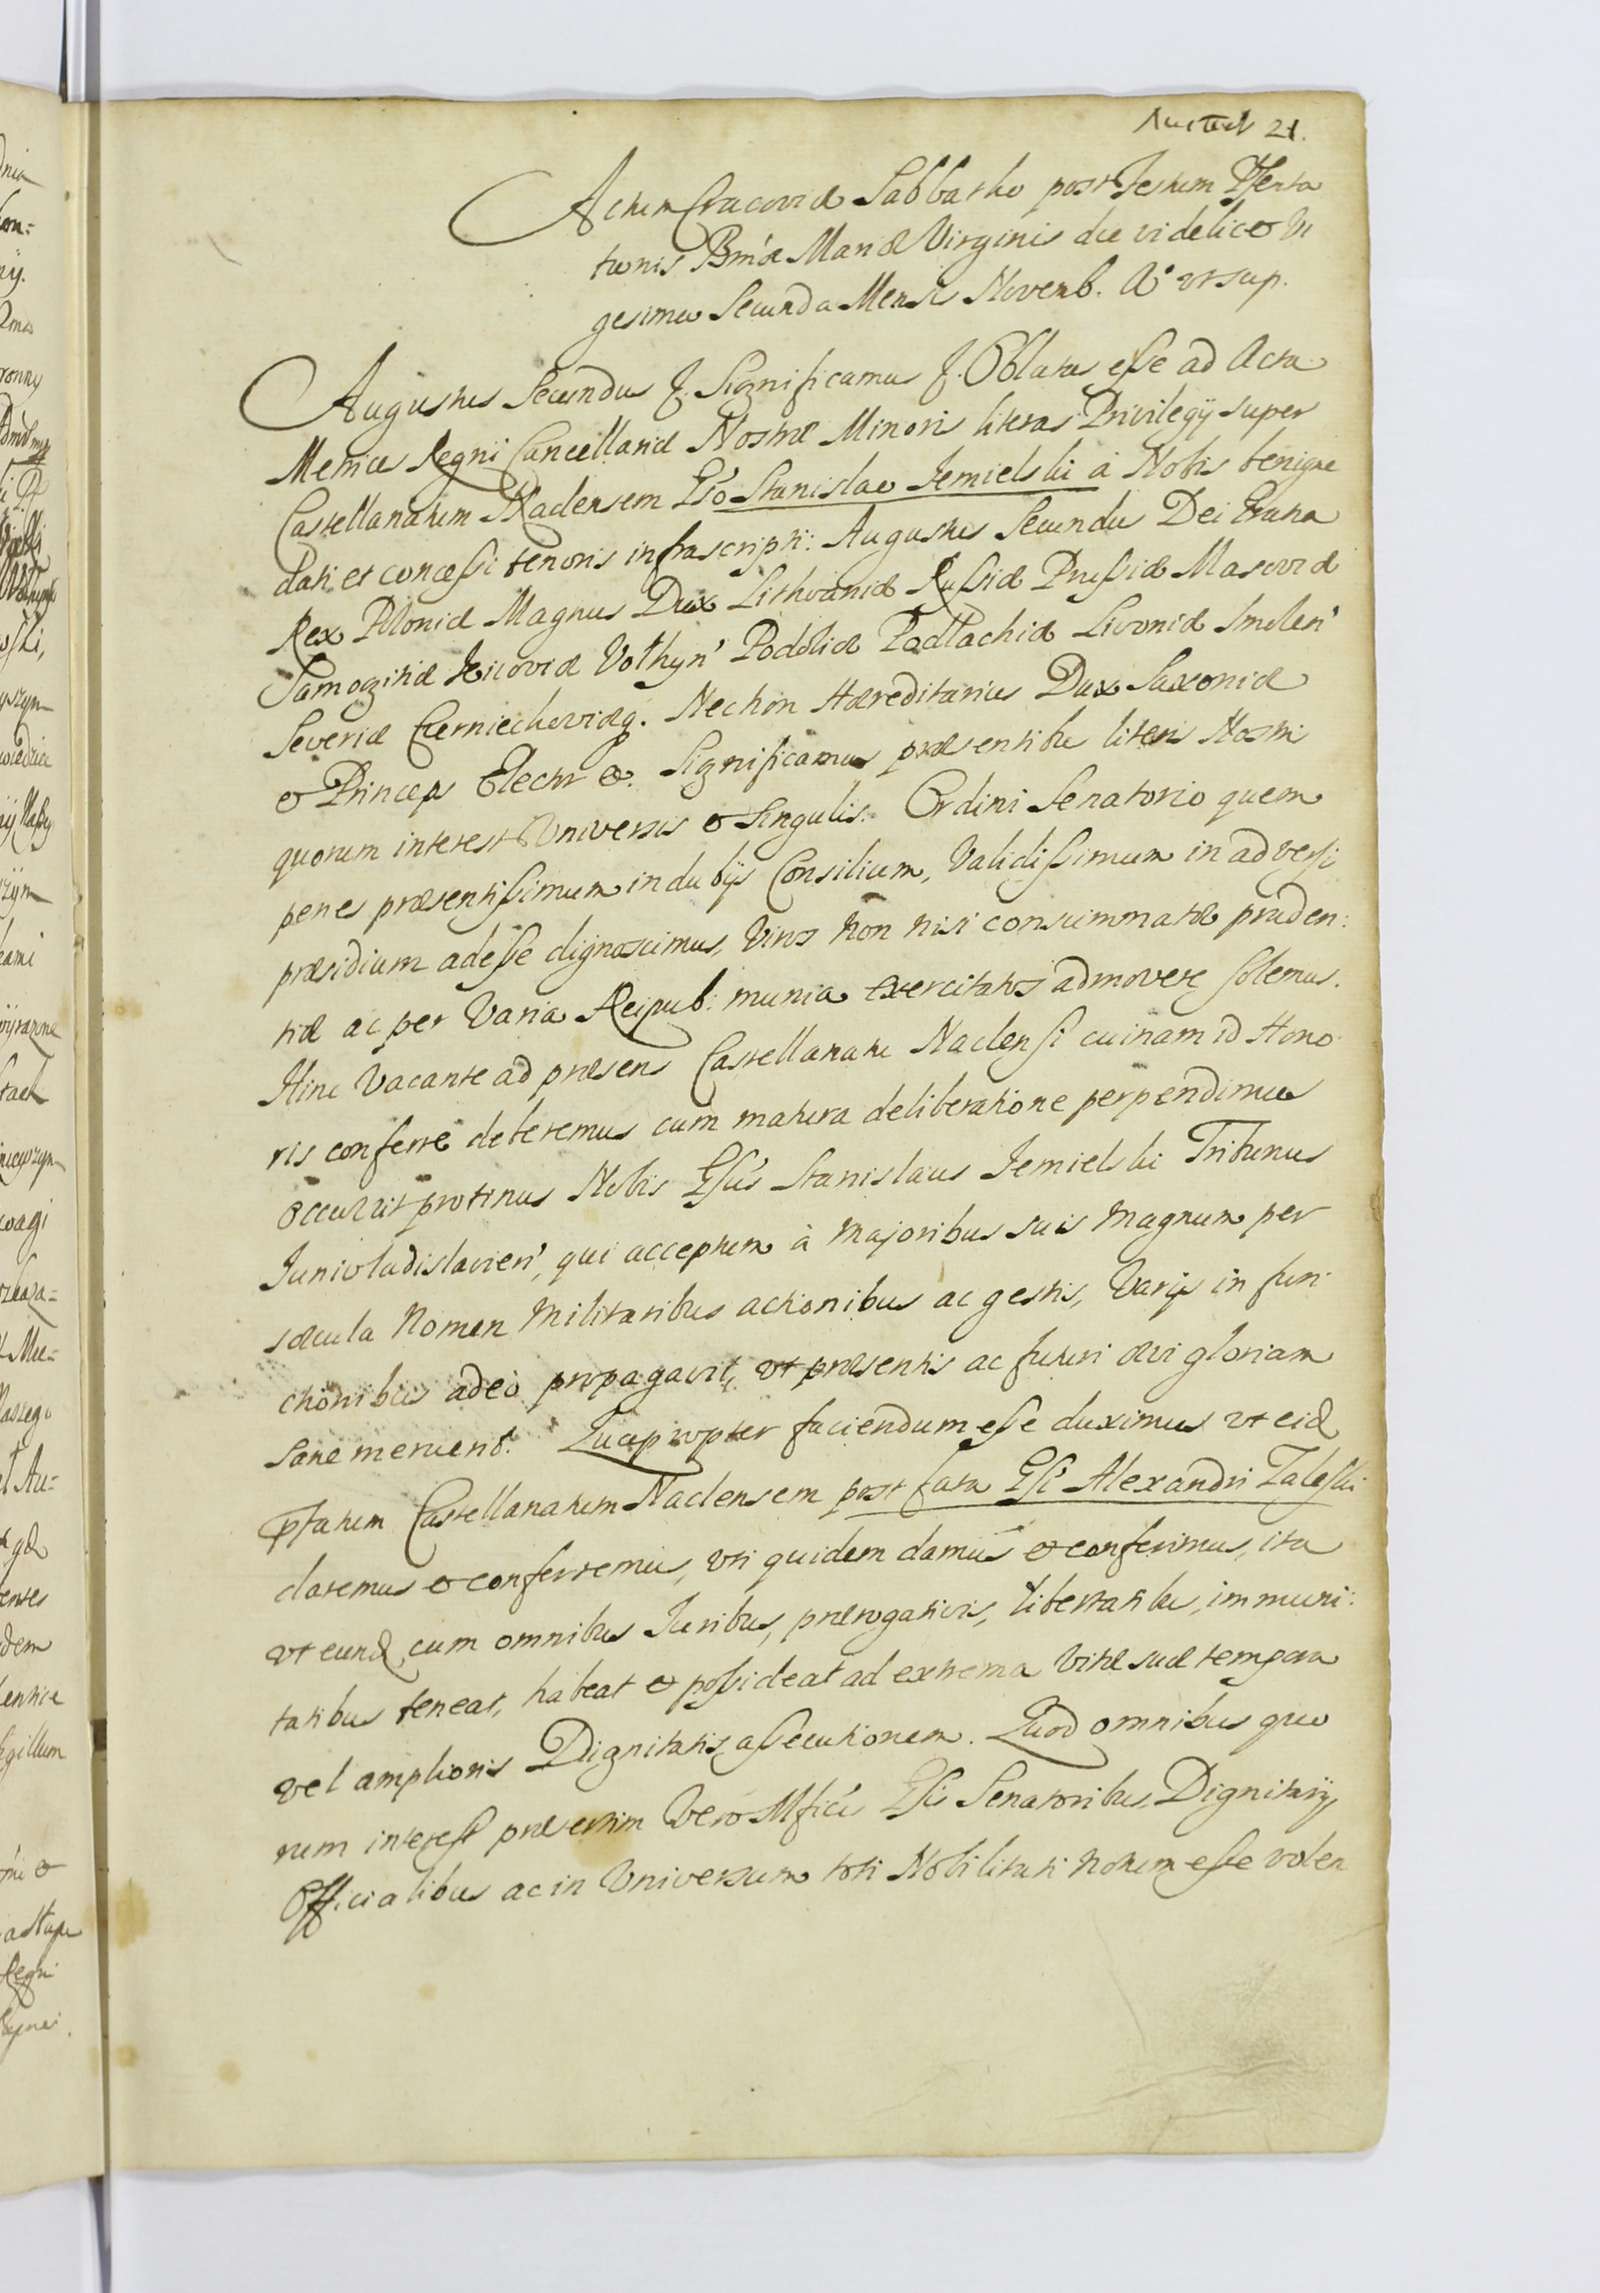 21.
Actum Cracoviæ Sabbatho post Festum Præsenta
tionis Bmæ Mariæ Virginis die videlicet Vi
gesima Secunda Mensis Novemb. A° ut sup.
Augustus Secundus &. Significamus &. Oblatas esse ad Acta
Metrices Regni Cancellariæ Nostræ Minoris literas Privilegij super
Castellanatum Naclensem Gso Stanislao Jemielski à Nobis benigne
dati et concessi tenoris infrascripti: Augustus Secundus Dei Gratia
Rex Poloniæ Magnus Dux Lithvaniæ Russiæ Prussiæ Masoviæ
Samogitiæ Kijoviæ Volhyn' Podoliæ Podlachiæ Livoniæ Smolen'
Severiæ Czerniechoviæq. Nec non Hæreditarius Dux Saxoniæ
et Princeps Elector &. Significamus præsentibus literis Nostris
quorum interest Universis et Singulis. Ordini Senatorio quem
penes præsentissimum in dubijs Consilium, Validissimum in adversis
præsidium adesse dignoscimus, Viros non nisi consummatæ pruden:
tiæ ac per Varia Reipub: munia exercitatos admovere solemus.
Hinc Vacante ad præsens Castellanatu Naclensi cuinam id Hono
ris conferre deberemus cum matura deliberatione perpendimus
occurrit protinus Nobis Gsus Stanislaus Jemielski Tribunus
Junivladislavien', qui acceptum à Majoribus suis Magnum per
sæcula Nomen Militaribus actionibus ac gestis, Varijs in fun
ctionibus adeò propagavit, ut præsentis ac futuri ævi gloriam
sane meruerit. Quapropter faciendum esse duximus ut eid
pstatum Castellanatum Naclensem post fata Gsi Alexandri Zaleski
daremus et conferremus, uti quidem damus et conferimus, ita
ut eund cum omnibus Juribus, prærogativis, libertatibus, immuni:
tatibus teneat, habeat et possideat ad extrema Vitæ suæ tempora
vel amplioris Dignitatis assecutionem. Quod omnibus quo
rum interest præsertim Vero Mficis Gsis Senatoribus, Dignitarijs
Officialibus ac in Universum toti Nobilitati notum esse volen